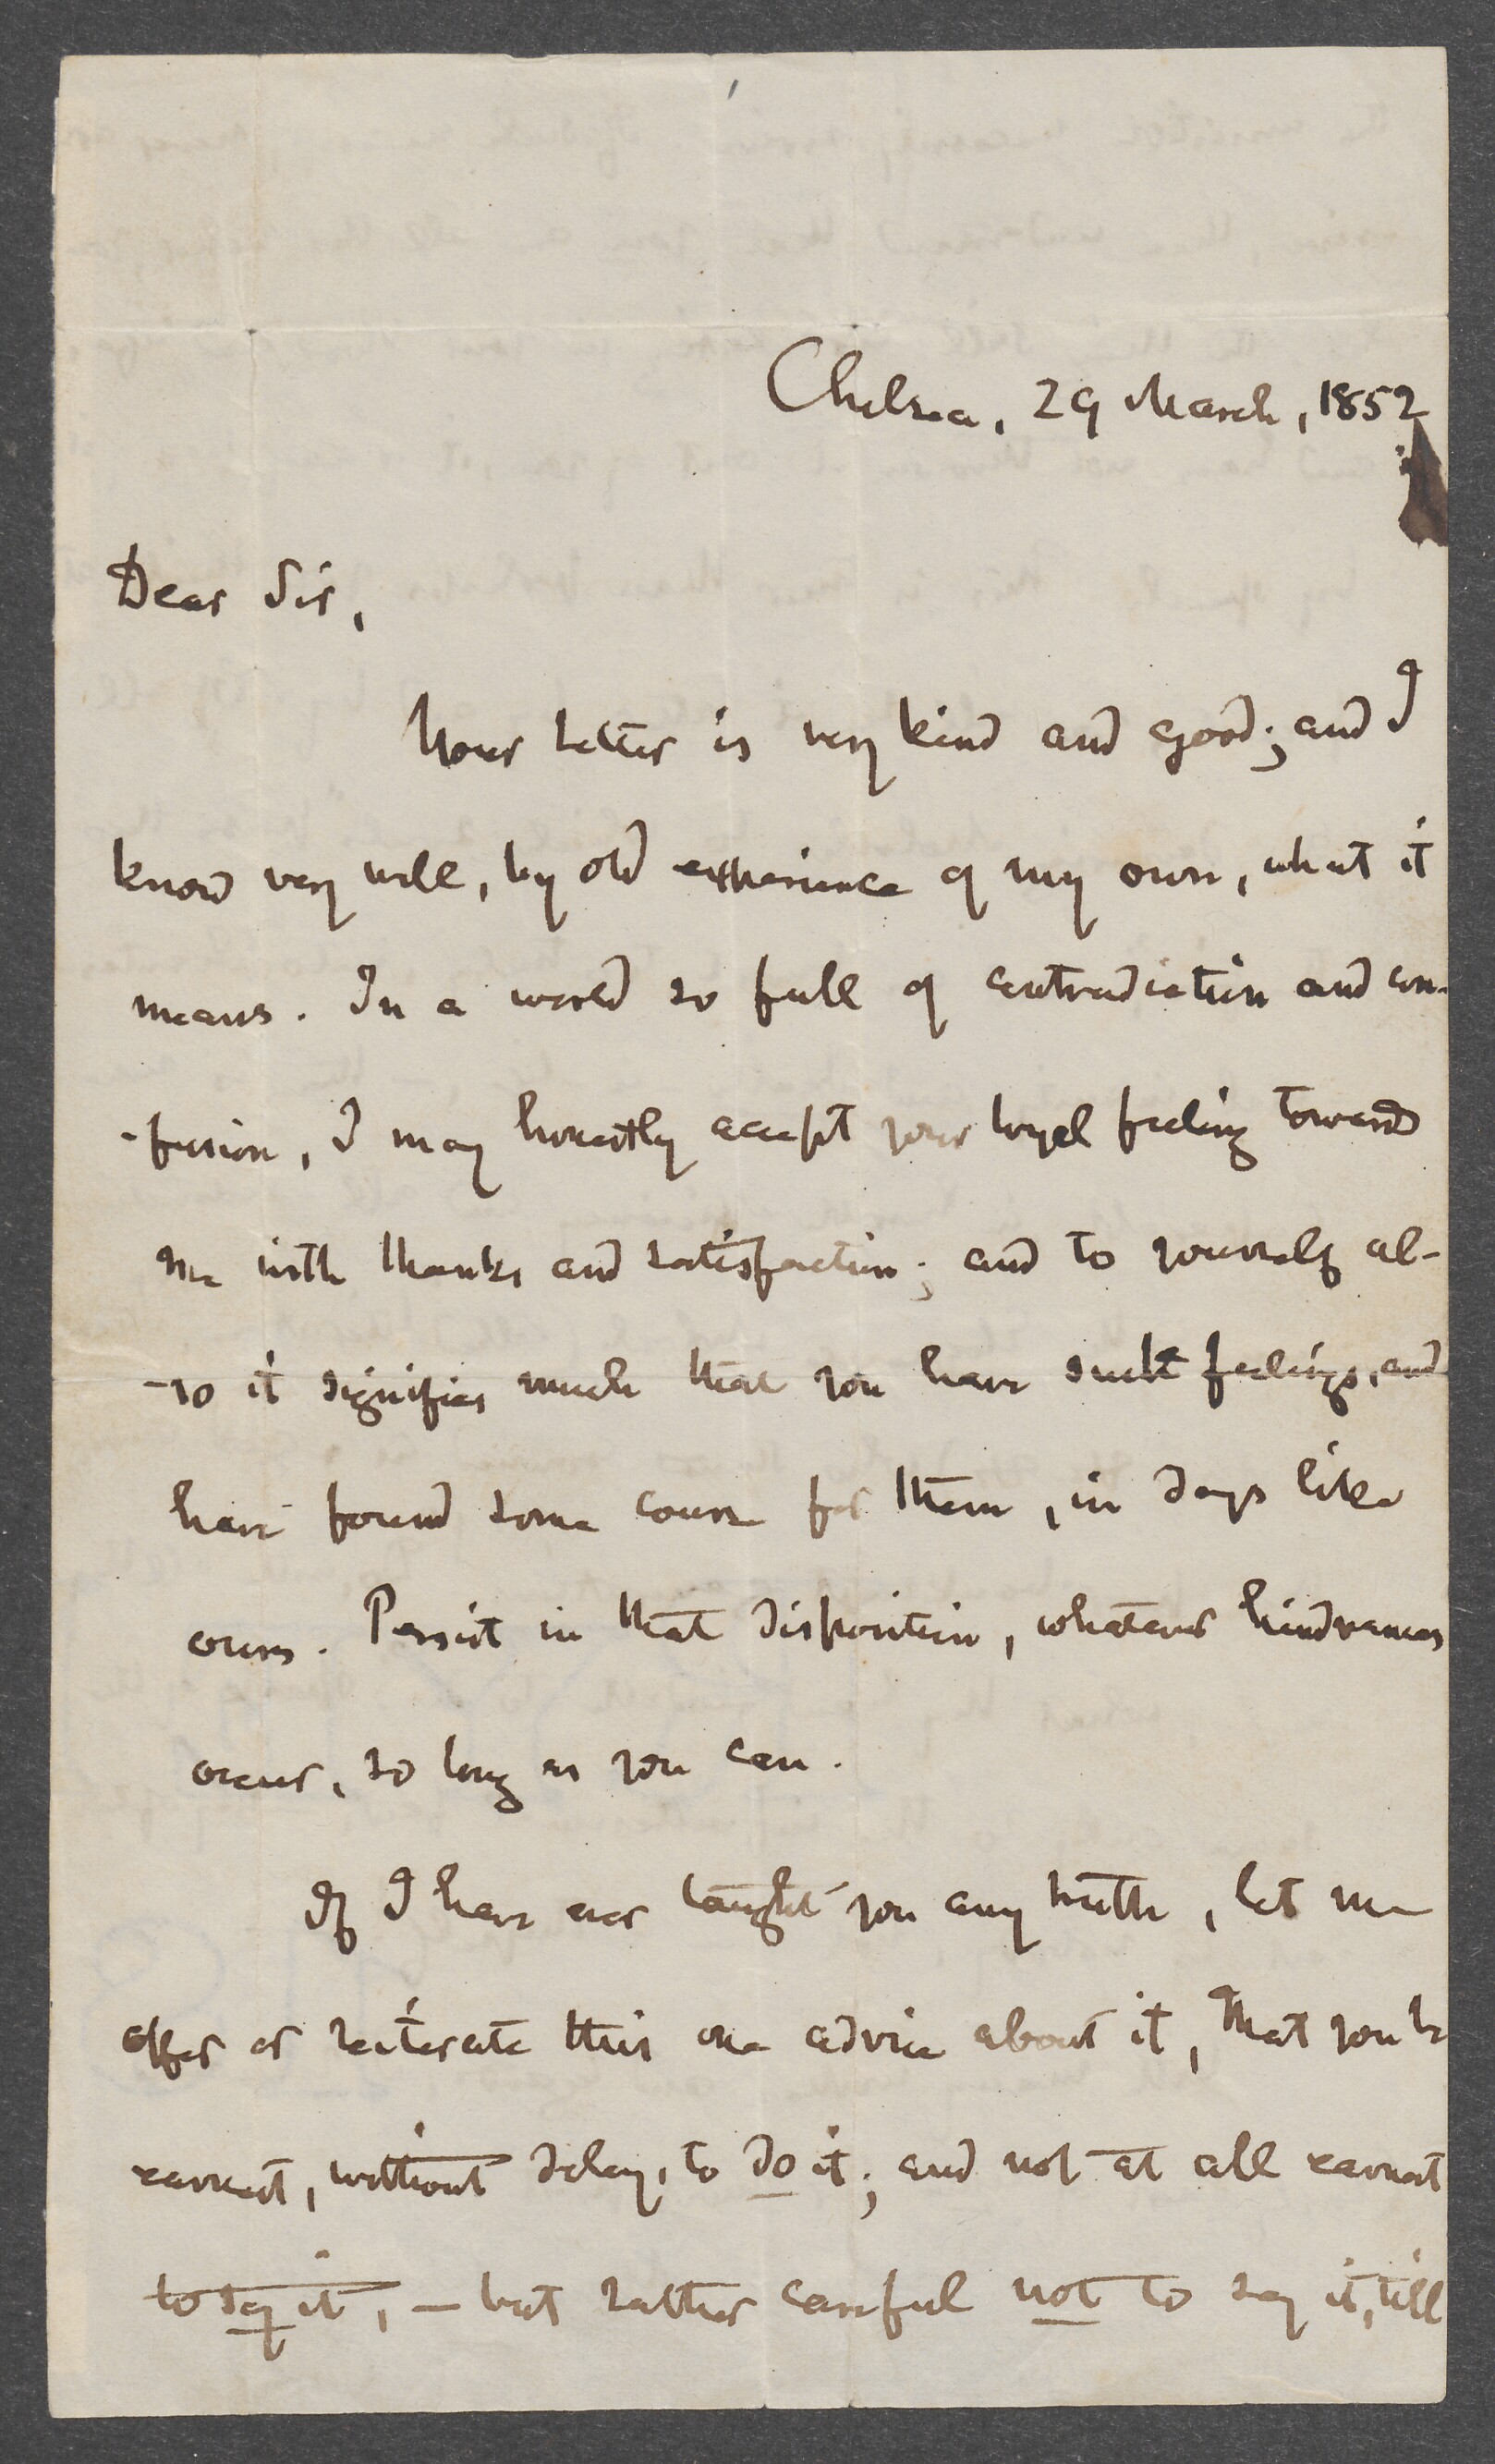 Chelsea, 29 March, 1852
Dear Sir,
Your Letter is very kind and good; and I
know very well, by old experience of my own, what it
means. In a world so full of contradiction and con-
-fusion, I may honestly accept your loyal feeling towards
me with thanks and satisfaction; and to yourself al-
-so it signifies much that you have such feelings, and
have found some course for them, in days like
ours. Persist in that disposition, whatever hindrances
occur, so long as you can.
If I have ever taught you any truth, let me
offer or reiterate this one advice about it, That you be
earnest, without delay, to do it; and not at all earnest
to say it, — but rather careful not to say it, till